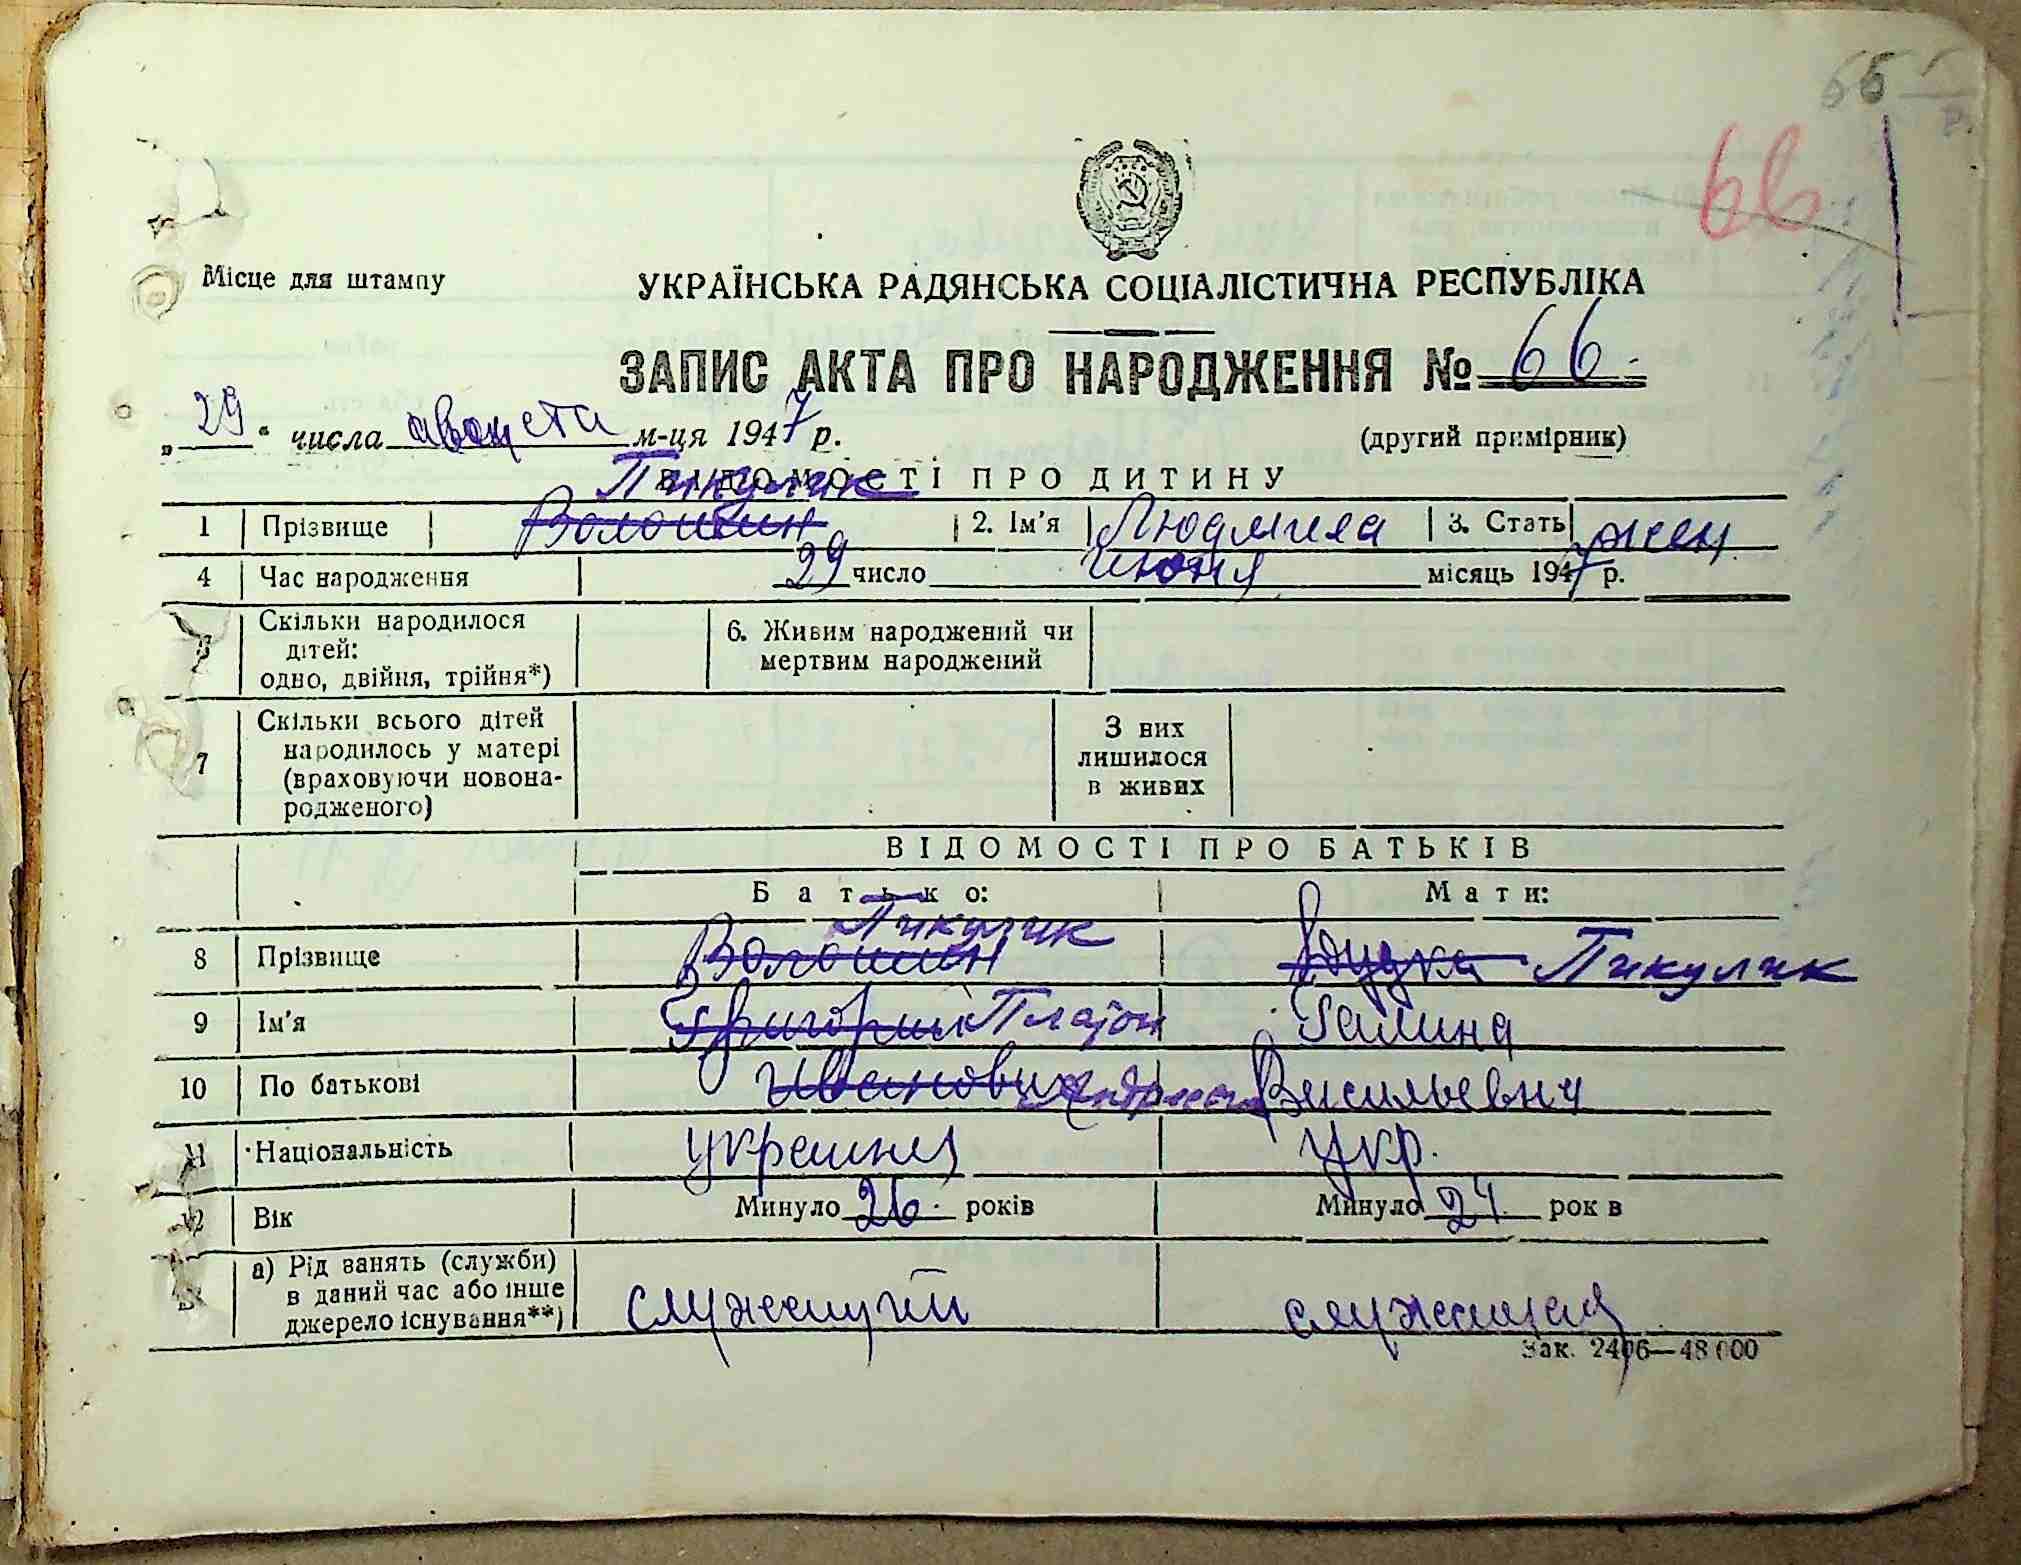 66
Місце для штампу
УКРАЇНСЬКА РАДЯНСЬКА СОЦІАЛІСТИЧНА РЕСПУБЛІКА
ЗАПИС АКТА ПРО НАРОДЖЕННЯ № 66.
„29“ числа августа м-ця 1947 р.
(другий примірник)
ВІДОМОСТІ ПРО ДИТИНУ
Пикулик
1 Прізвище Волошин 2. Ім'я Людмила 3. Стать жен.
4 Час народження 29 число июня місяць 1947 р.
5 Скільки народилося дітей: одно, двійня, трійня*) 6. Живим народжений чи мертвим народжений
7 Скільки всього дітей народилось у матері (враховуючи новонародженого) З них лишилося в живих
ВІДОМОСТІ ПРО БАТЬКІВ
Батько: Мати:
Пикулик
8 Прізвище Волошин Пикулик
9 Ім'я Григорий Платон Галина
10 По батькові Иванович Васильевич
11 Національність украинец укр.
12 Вік Минуло 26. років Минуло 24. рок в
13 а) Рід занять (служби) в даний час або інше джерело існування**) служащий служащая
Зак. 2406—48 000